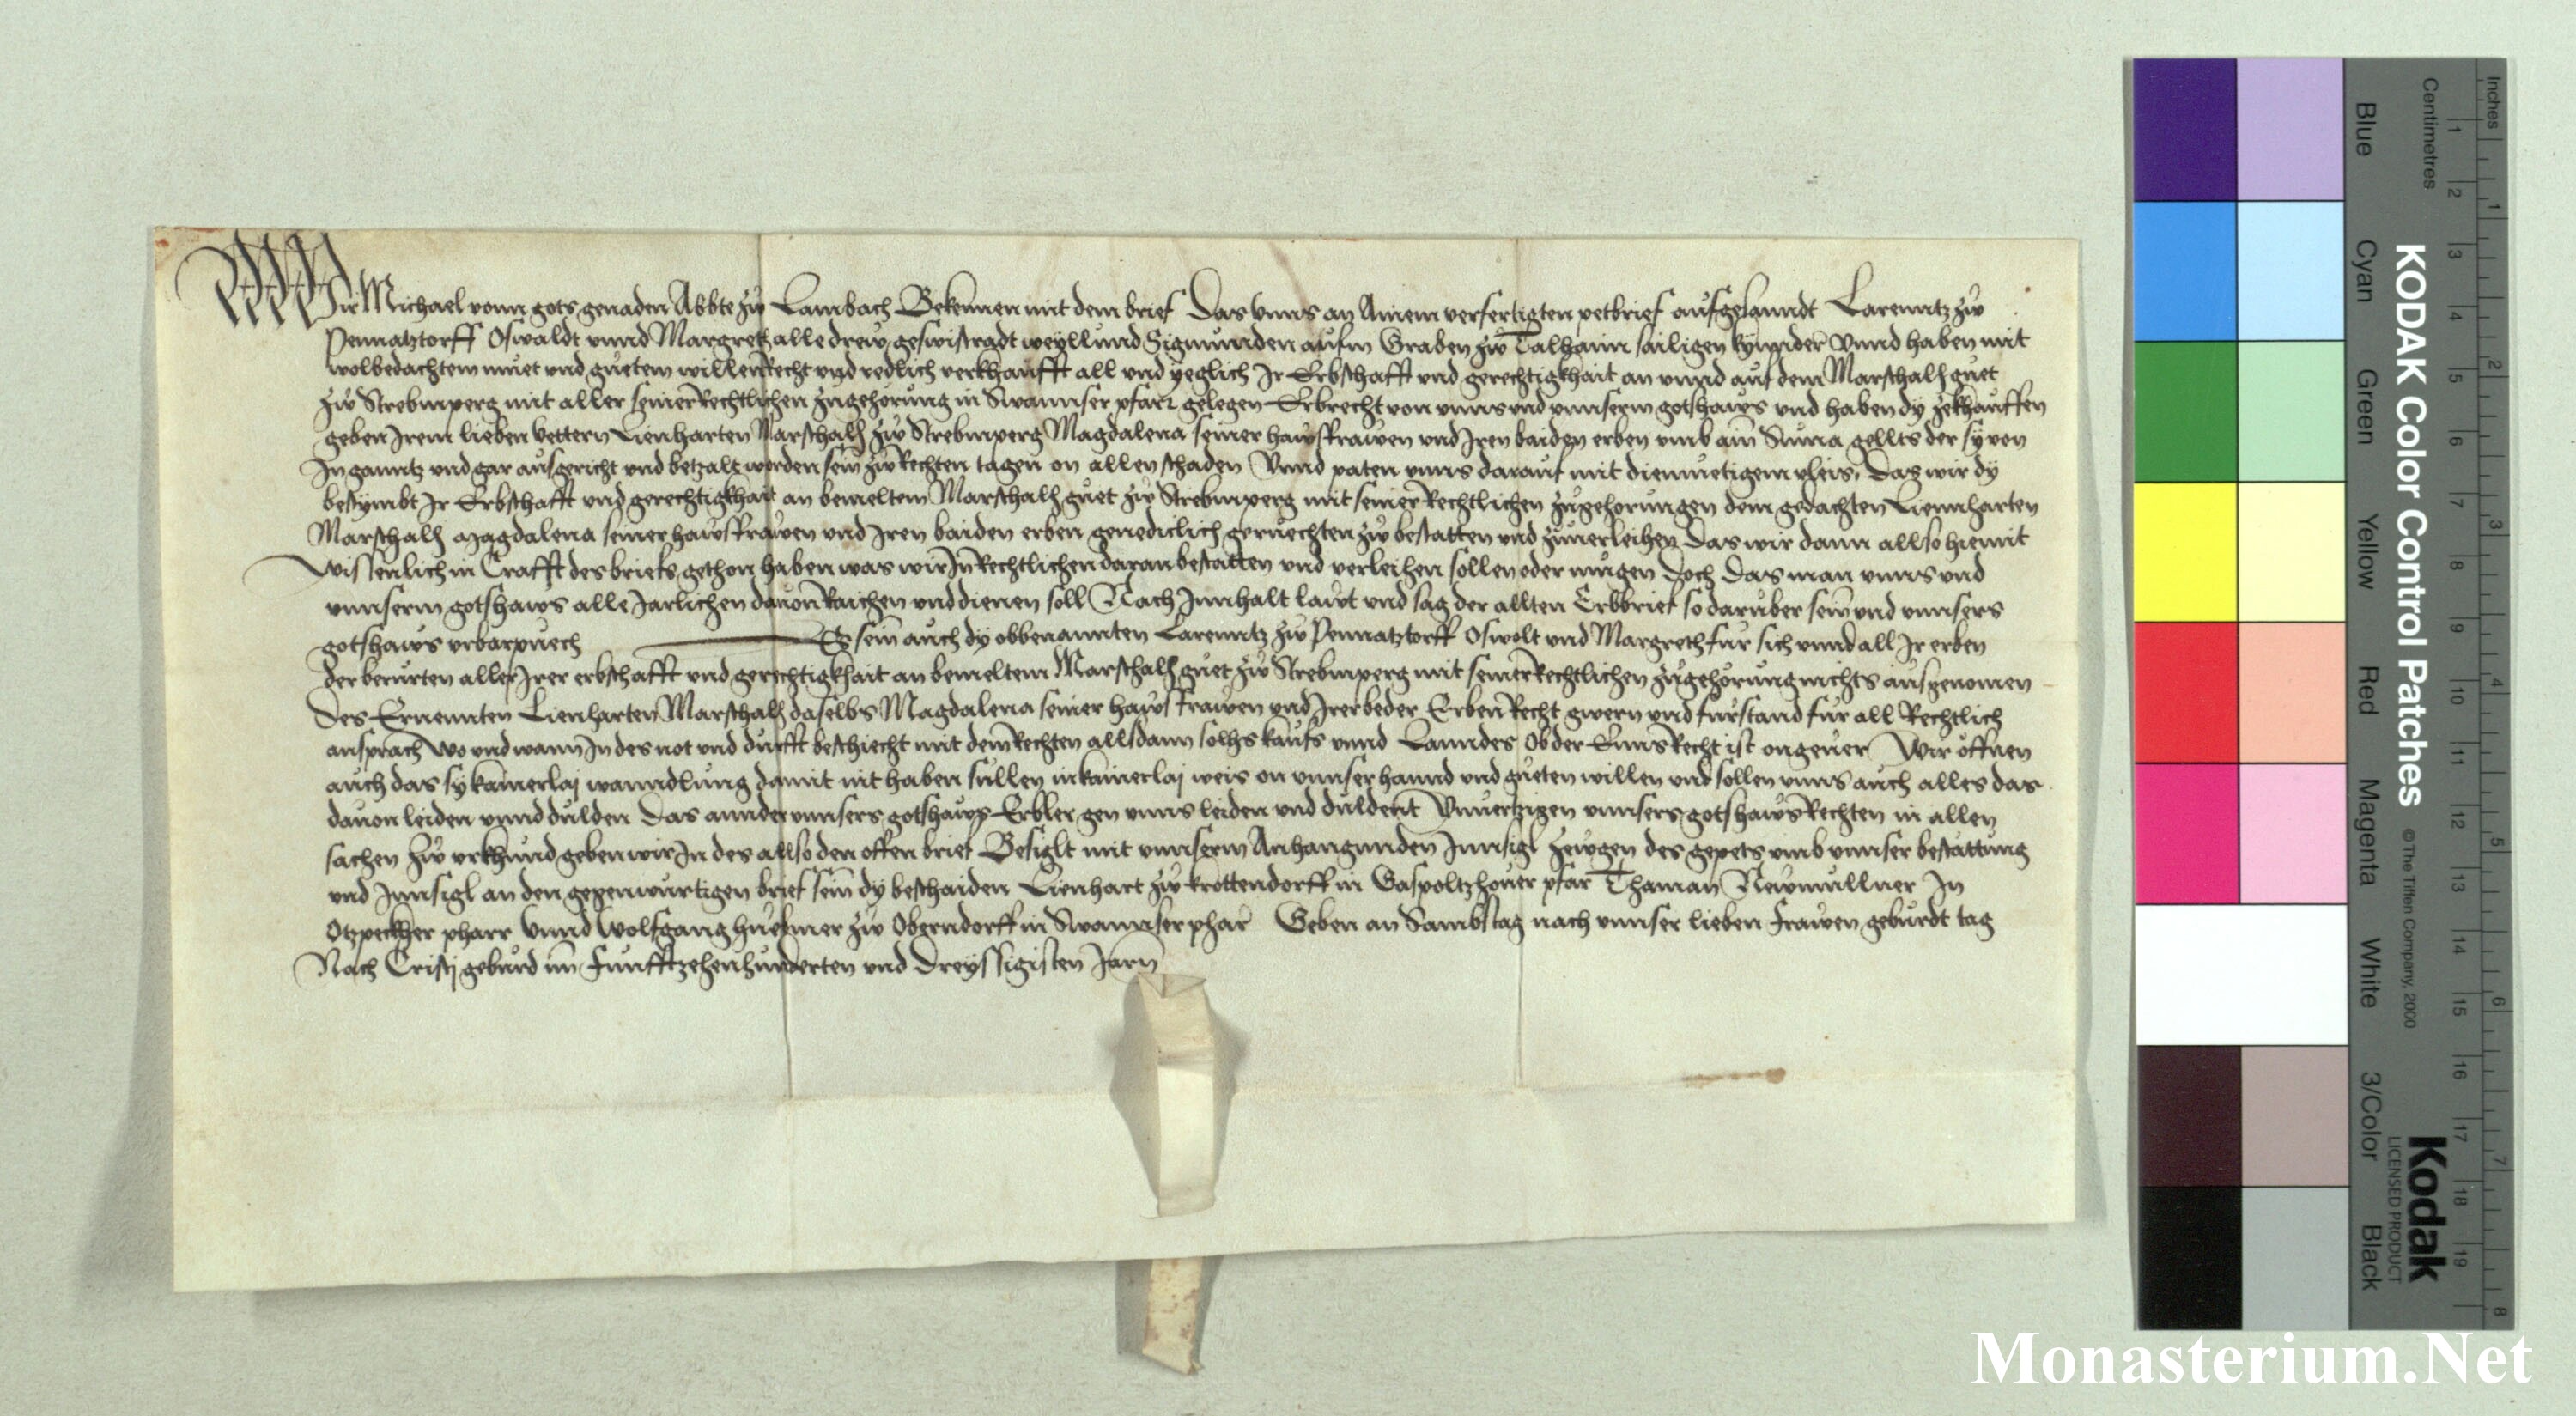 Wir Michael vonn gots genaden Abbte zw Lambach Bekennen mit dem brief Das vnns an Ainem verfertigten petbrief aufgesanndt Larenntz zw
Pennatztorff Oswaldt vnnd Margreth alle drew geswistradt weyllund Sigmunden aufm Graben zw Talhaim sailigen kynnder Vnnd haben mit
wolbedachtem muet vnd guetem willen Recht vnd redlich verkhaufft all vnd yeglich Ir Erbschafft vnd gerechtigkhait an vnnd auf dem Marschalh guet
zw Strebmperg mit aller seiner Rechtlichen zugehorung in Swannser pfarr gelegen Erbrecht von vnns vnd vnnserm gotshaws vnd haben dy zekhauffen
geben Irem lieben vettern Lienharten Marschalh zw Strebmperg Magdalena seiner hawsfrawen vnd Iren baiden erben vmb ain Suma gellts der sy von
In ganntz vnd gar ausgericht vnd betzalt worden sein zw Rechten tagen on allen schaden Vnnd paten vnns darauf mit diemuetigem vleis, Das wir dy
bestymbt Ir Erbschafft vnd gerechtigkhait an bemeltem Marschalh guet zw Strebmperg mit seiner Rechtlichen zugehorungen dem gedachten Liennharten
Marschalh Magdalena seiner hawsfrawen vnd Iren baiden erben genediclich geruechten zw bestatten vnd zuuerleihen Das wir dann allso hiemit
Wissenlich in Crafft des briefs gethon haben was wir In Rechtlichen daran bestatten vnd verleihen sollen oder mugen Doch Das man vnns vnd
vnnserm gotshaws alle Jarlichen dauon Raichen vnd dienen soll Nach Innhalt lawt vnd sag der allten Erbbrief so daruber sein vnd vnnsers
gotshaws vrbarpuech Es sein auch dy obbenannten Larenntz zw Pennatztorff Oswolt vnd Margreth fur sich vnnd all Ir erben
der berurten aller Irer erbschafft vnd gerechtigkhait an bemeltem Marschalh guet zw Strebmperg mit seiner Rechtlichen zugehorung nichts ausgenomen
Des Ernennten Lienharten Marschalh daselbs Magdalena seiner hawsfrawen vnd Irer beder Erben Recht gwern vnd furstand fur all Rechtlich
ansprach wo vnd wann In des not vnd durfft beschiecht mit dem Rechten allsdann solhs kaufs vnnd Lanndes Ob der Enns Recht ist ongeuer Wir offnen
auch das sy kainerlaj wanndlung damit nit haben sullen in kainerlaj weis on vnnser hannd vnd gueten willen vnd sollen vnns auch alles das
dauon leiden vnnd dulden Das annder vnnsers gotshaws Erbler gen vnns leiden vnd duldent Vnuerzigen vnnsers gotshaws Rechten in allen
sachen Zw vrkhund geben wir In des allso den offen brief Besiglt mit vnnserm Anhangunden Innsigl Zewgen des gepets vmb vnnser bestattung
vnd Innsigl an den gegenwurtigen brief sein dy beschaiden Lienhart zw krottendorff in Gaspoltzhouer pfar Thaman Newmullner In
Otzpeckher pharr Vnnd Wolfgang huebmer zw Oberndorff in Swannser phar Geben an Sambstag nach vnnser lieben frawen geburdt tag
Nach Cristj geburd im funfftzehenhunderten vnd Dreyssigisten Jarn
KODAK Color Control Patches
© The Tiffen Company, 2000
Kodak
LICENSED PRODUCT
Blue Cyan Green Yellow Red Magenta White 3/Color Black
Centimetres
1 2 3 4 5 6 7 8 9 10 11 12 13 14 15 16 17 18 19
Inches
1 2 3 4 5 6 7 8
Monasterium.Net